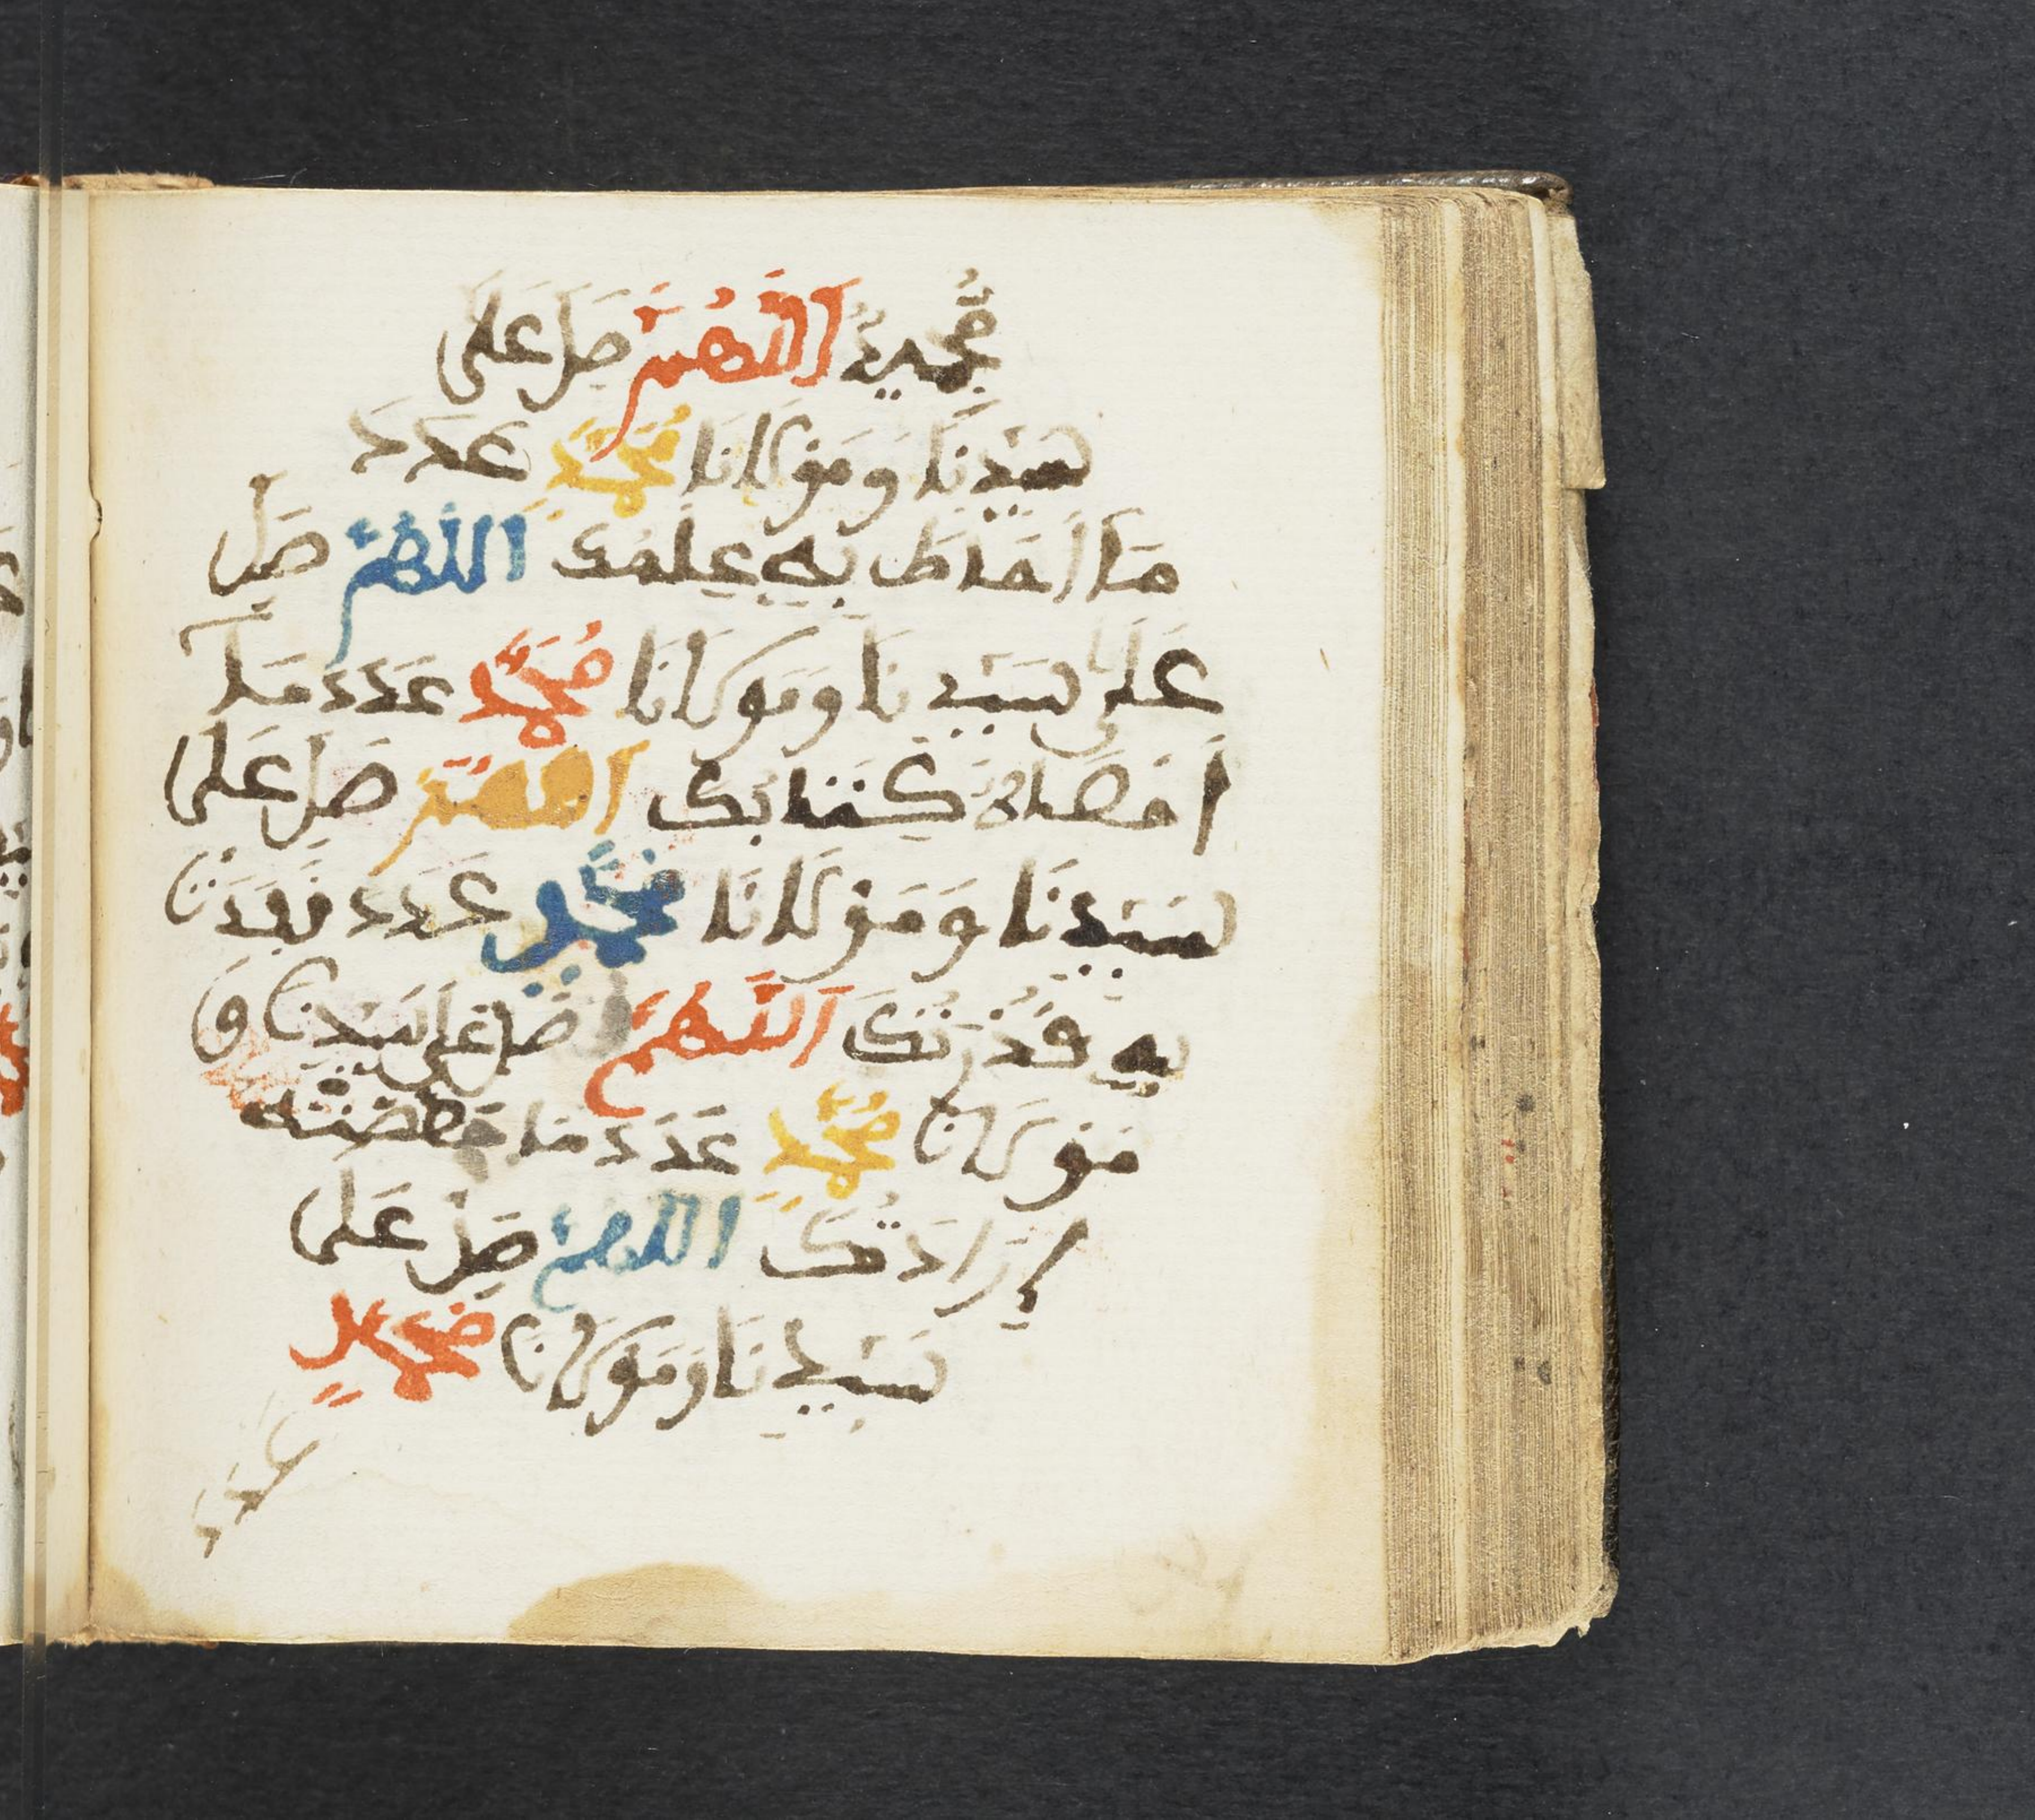 مَّجِيدٌ اَللَّهُمَّ صَلِّ عَلَى
سَيِّدِنَا وَمَوْلَانَا مُحَمَّدٍ عَدَدَ
مَا أَحَاطَ بِهِ عِلْمُكَ اَللَّهُمَّ صَلِّ
عَلَى سَيِّدِنَا وَمَوْلَانَا مُحَمَّدٍ عَدَدَ مَا
أَحْصَاهُ كِتَابُكَ اَللَّهُمَّ صَلِّ عَلَى
سَيِّدِنَا وَمَوْلَانَا مُحَمَّدٍ عَدَدَ مَا نَفَذَتْ
بِهِ قُدْرَتُكَ اَللَّهُمَّ صَلِّ عَلَى سَيِّدِنَا وَ
مَوْلَانَا مُحَمَّدٍ عَدَدَ مَا خَصَّصَتْهُ
إِرَادَتُكَ اَللَّهُمَّ صَلِّ عَلَى
سَيِّدِنَا وَمَوْلَانَا مُحَمَّدٍ
عَدَدَ